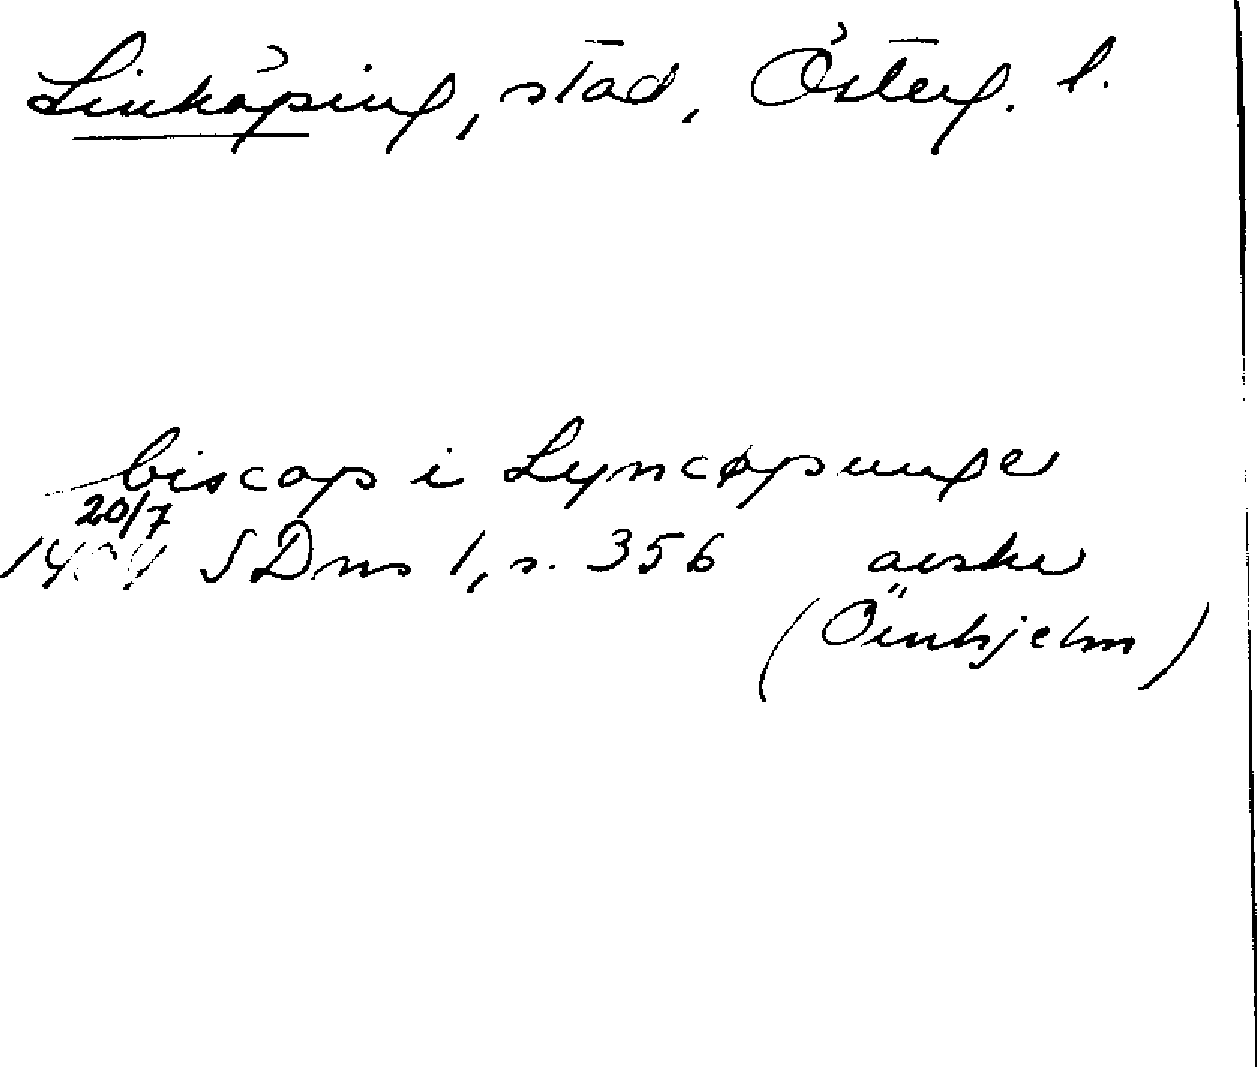 Linköping, stad, Österg. l.
biscop i Lyncøpunge
20/7
1404 SDns 1, s. 356 avskr
(Örnhjelm)